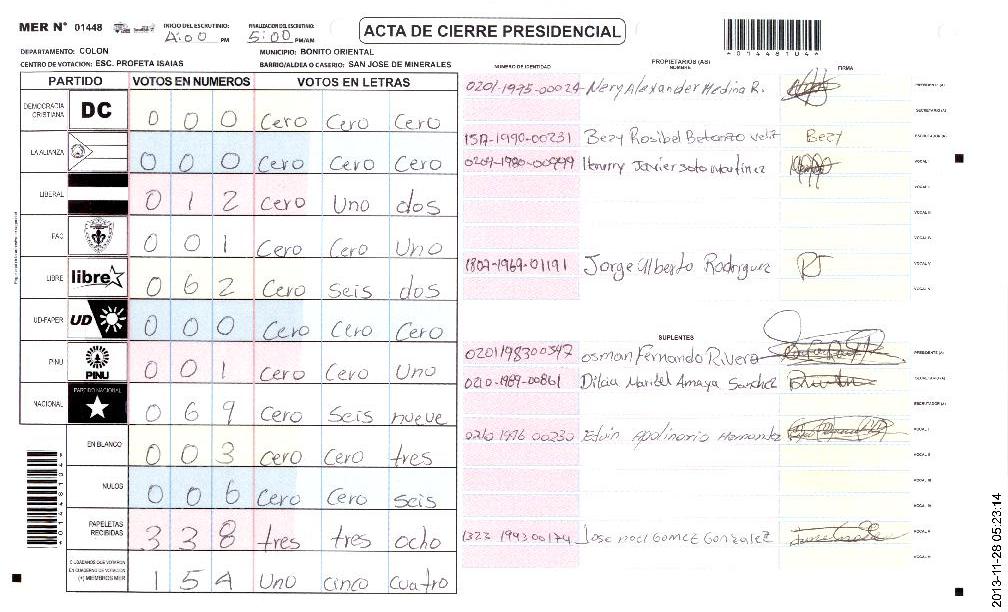 MER N° 01448
INICIO DEL ESCRUTINIO: 4:00 PM
FINALIZACION DEL ESCRUTINIO: 5:00 PM/AM
ACTA DE CIERRE PRESIDENCIAL
*01448104*
DEPARTAMENTO: COLON
MUNICIPIO: BONITO ORIENTAL
CENTRO DE VOTACION: ESC. PROFETA ISAIAS
BARRIO/ALDEA O CASERIO: SAN JOSE DE MINERALES
PARTIDO VOTOS EN NUMEROS VOTOS EN LETRAS
DEMOCRACIA CRISTIANA DC 0 0 0 Cero Cero Cero
LA ALIANZA 0 0 0 Cero Cero Cero
LIBERAL 0 1 2 Cero Uno dos
FAC 0 0 1 Cero Cero Uno
LIBRE libre 0 6 2 Cero Seis dos
UD-FAPER UD 0 0 0 Cero Cero Cero
PINU PINU 0 0 1 Cero Cero Uno
NACIONAL PARTIDO NACIONAL 0 6 9 Cero Seis nueve
EN BLANCO 0 0 3 cero Cero tres
NULOS 0 0 6 Cero Cero seis
PAPELETAS RECIBIDAS 3 3 8 tres tres ocho
CIUDADANOS QUE VOTARON EN CUADERNO DE VOTACION (+) MIEMBROS MER 1 5 4 Uno cinco cuatro
PROPIETARIOS (AS)
NUMERO DE IDENTIDAD NOMBRE FIRMA
0201-1995-00024 Nery Alexander Medina R. PRESIDENTE (A)
SECRETARIO (A)
1517-1990-00231 Bezy Rosibel Betanco Bezy ESCRUTADOR (A)
0209-1980-00999 Javier soto Martinez VOCAL I
VOCAL II
VOCAL III
VOCAL IV
1807-1969-01191 Jorge Alberto Rodriguez VOCAL V
SUPLENTES
0201198300347 osman Fernando Rivera PRESIDENTE (A)
0210-1989-00861 Maricel Amaya Sanchez SECRETARIO (A)
ESCRUTADOR (A)
0210 1996 00230 Edvin Apolinario Hernandez VOCAL I
VOCAL II
VOCAL III
VOCAL IV
1323 1993 00174 Jose noel Gomez Gonzalez VOCAL V
2013-11-28 05:23:14